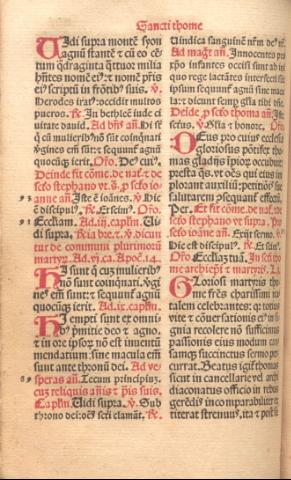 Sancti thome
Vidi supra montē syon
agnū stantē ⁊ cū eo cē-
tum q̄draginta q̄ttuor milia
hn̄tes nomē eiꝰ:⁊ nomē pr̄is
ei scriptū in frōtibꝰ suis. ℣.
Herodes iratꝰ:occidit multos
pueros. ℟. In bethleē iude ci
uitate dauid. Ad bn̄s an̄. Hi sūt
q̄ cū mulieribꝰ nō sūt coinq̄nati
ṽgines em̄ sūt:⁊ sequunt̄ agnū
quocūq̄ꝫ ierit. Oro. Deꝰ cuiꝰ.
Deinde fit cōme. de nat. ⁊ de
scto stephano vt s. p̄ scto io-
anne an̄. Iste ē ioānes. ℣. Hic
ē discipulꝰ. ℟. Et scimꝰ. Oro.
Eccliam. Ad .ij. capl̄m. Vi
di supra,
tur de communi plurimorū
martyꝝ. Ad .vj. ca. Apoc. 14.
Hi sunt q̄ cuꝫ mulieribꝰ
nō sunt coinquinati. ṽgi
nes em̄ sunt:⁊ sequunt̄ agnū
quocūq̄ꝫ ierit. Ad .ix. capl̄m.
Hi empti sunt ex omni-
bꝰ p̄mitie deo ⁊ agno.
⁊ in ore ipsoꝝ nō est inuentū
mendatium:sine macula em̄
sunt ante thronū dei. Ad ve-
speras an̄. Tecum principiuꝫ.
cuꝫ reliquis an̄is ⁊ p̄s suis.
Capl̄m. Vidi supra. ℣. Sub
throno dei:oēs scti clamāt. ℟.
Vindica sanguinē nr̄m deꝰ nr̄.
Ad maḡt an̄. Innocentes pro
xp̄o infantes occisi sunt ab ini
quo rege lactātes interfecti sūt
ipsum sequunt̄ agnū sine macu
la:⁊ dicunt semꝑ gl̄ia tibi dn̄e.
Deīde p̄ scto thoma an̄. Iste
sctus. ℣. Gl̄ia ⁊ honore. Oro.
Deus pro cuius ecclesia
gloriosus pōtifex tho-
mas gladijs ipioꝝ occubuit:
presta q̄s. vt oēs qui eius im
plorant auxiliū:petitiōis sue
salutarem ꝯsequant̄ effectū.
Per. Et fit cōme. de nat. ⁊ de
scto stephano vt supra. Pro
scto ioāne an̄. Exijt sermo. ℣.
Hic est discipulꝰ. ℟. Et scimꝰ.
Oro. Eccliaꝫ tuā. In scti tho
me archiep̄i ⁊ martyris.
Gloriosi martyris tho
me frēs charissimi na
talem celebrantes:q̄ totius
vite ⁊ cōuersationis eiꝰ in-
gnia recolere nō sufficimus
passionis eius modum cau
samq̄ꝫ succinctus sermo per
currat. Beatus igit̄ thomas
sicut in cancellarie vel archi
diaconatus officio in rebus
gerēdis incomparabiliter ex
titerat strenuus, ita ⁊ post su